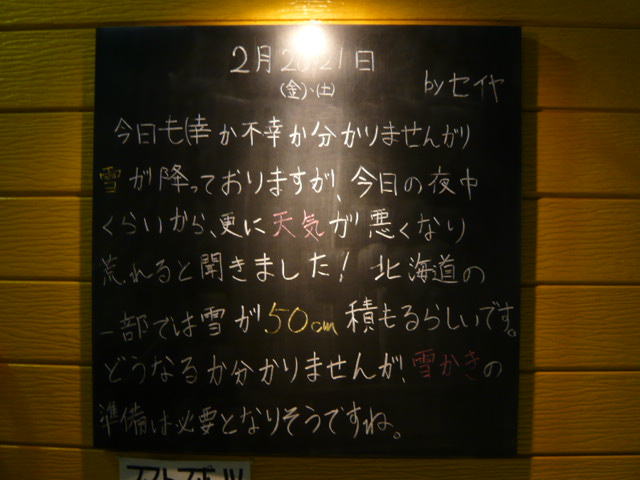 2月20.21日
(金)、(土)
byセイヤ
今日も(幸か不幸か分かりませんが)
雪が降っておりますが、今日の夜中
くらいから、更に天気が悪くなり
荒れると聞きました! 北海道の
一部では雪が50cm積もるらしいです。
どうなるか分かりませんが、雪かきの
準備は必要となりそうですね。